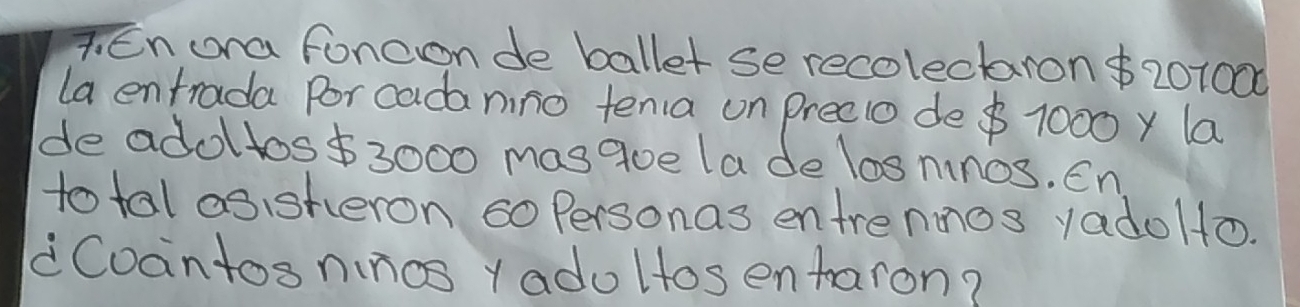 7. En una funcion de ballet se recolectaron $ 201000
la entrada por cada niño tenia un precio de $ 1000 y la
de adultos $ 3000 mas que la de los ninos. En
total asistieron 60 Personas entre ninos y adulto.
¿Cuántos niños y adultos entraron?